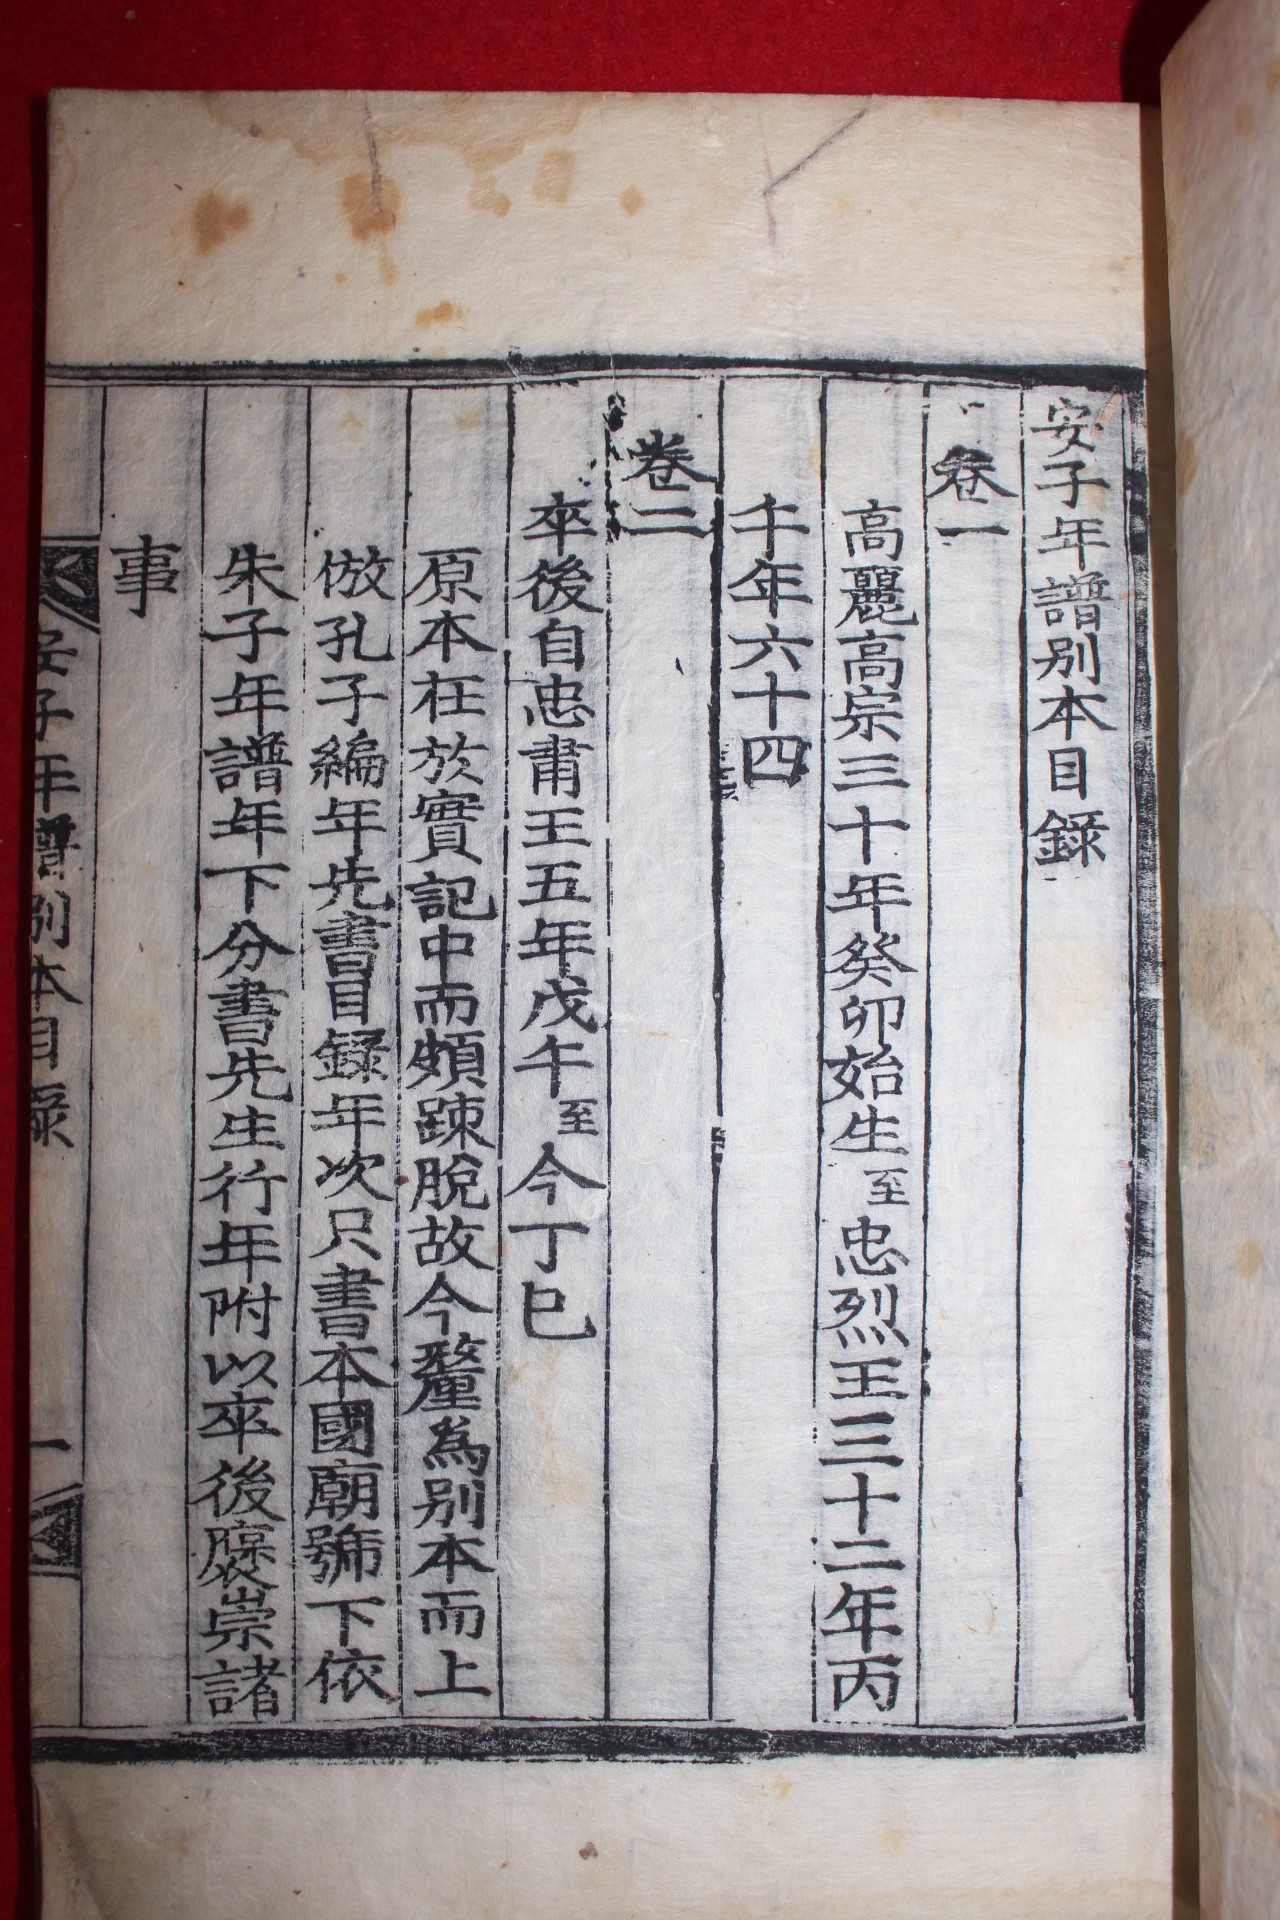 安子年譜別本目録
卷一
高麗高宗三十年癸卯始生至忠烈王三十二年丙
午年六十四
卷二
卒後自忠肅王五年戊午至今丁巳
原本在於實記中而頗踈脫故今釐為別本而上
倣孔子編年先書目録年次只書本國廟號下依
朱子年譜年下分書先生行年附以卒後褒崇諸
事
安子年譜別本目録
一